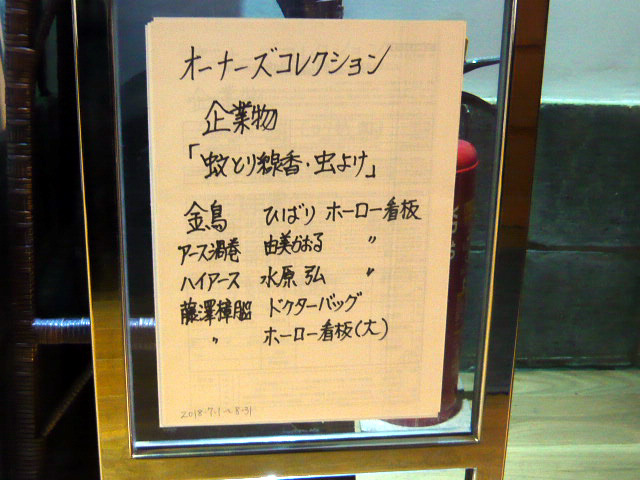 オーナーズコレクション
企業物
「蚊とり線香・虫よけ」
金鳥 ひばり ホーロー看板
アース渦巻 由美かおる 〃
ハイアース 水原 弘 〃
藤澤樟脳 ドクターバッグ
〃 ホーロー看板(大)
2018.7.1～8.31